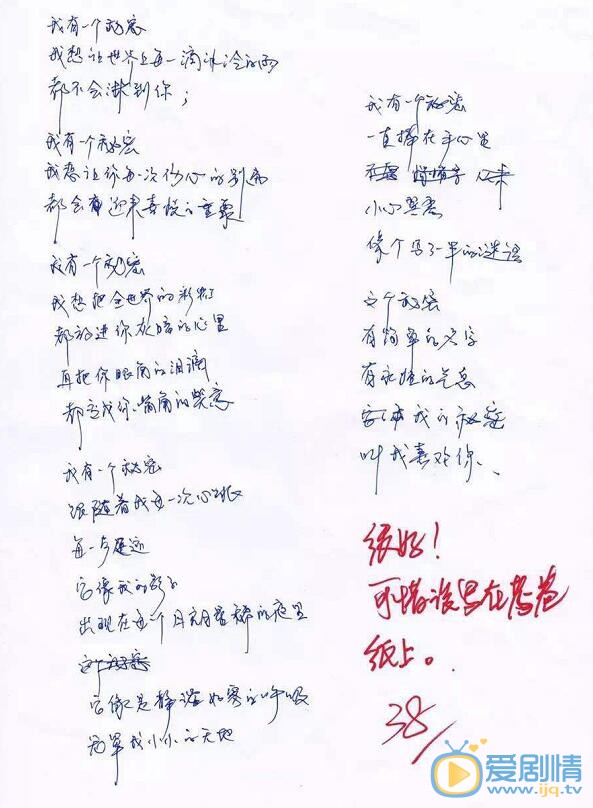 我有一个秘密
我想让世界上每一滴冰冷的雨
都不会淋到你；
我有一个秘密
我想让你每一次伤心的别离
都会有迎来喜悦的重聚
我有一个秘密
我想把全世界的彩虹
都放进你灰暗的心里
再把你眼角的泪滴
都变成你嘴角的笑意
我有一个秘密
跟随着我每一次心跳
每一步足迹
它像我的影子
出现在每个月朗星稀的夜里
这个秘密
它像是静谧如寒的呼吸
笼罩我小小的天地
我有一个秘密
一直捧在手心里
小心翼翼
像个写了一半的谜语
这个秘密
有简单的名字
有永恒的气息
我的秘密
叫我喜欢你、
很好！
可惜误写在答卷
纸上。
38/
爱剧情
www.ijq.tv